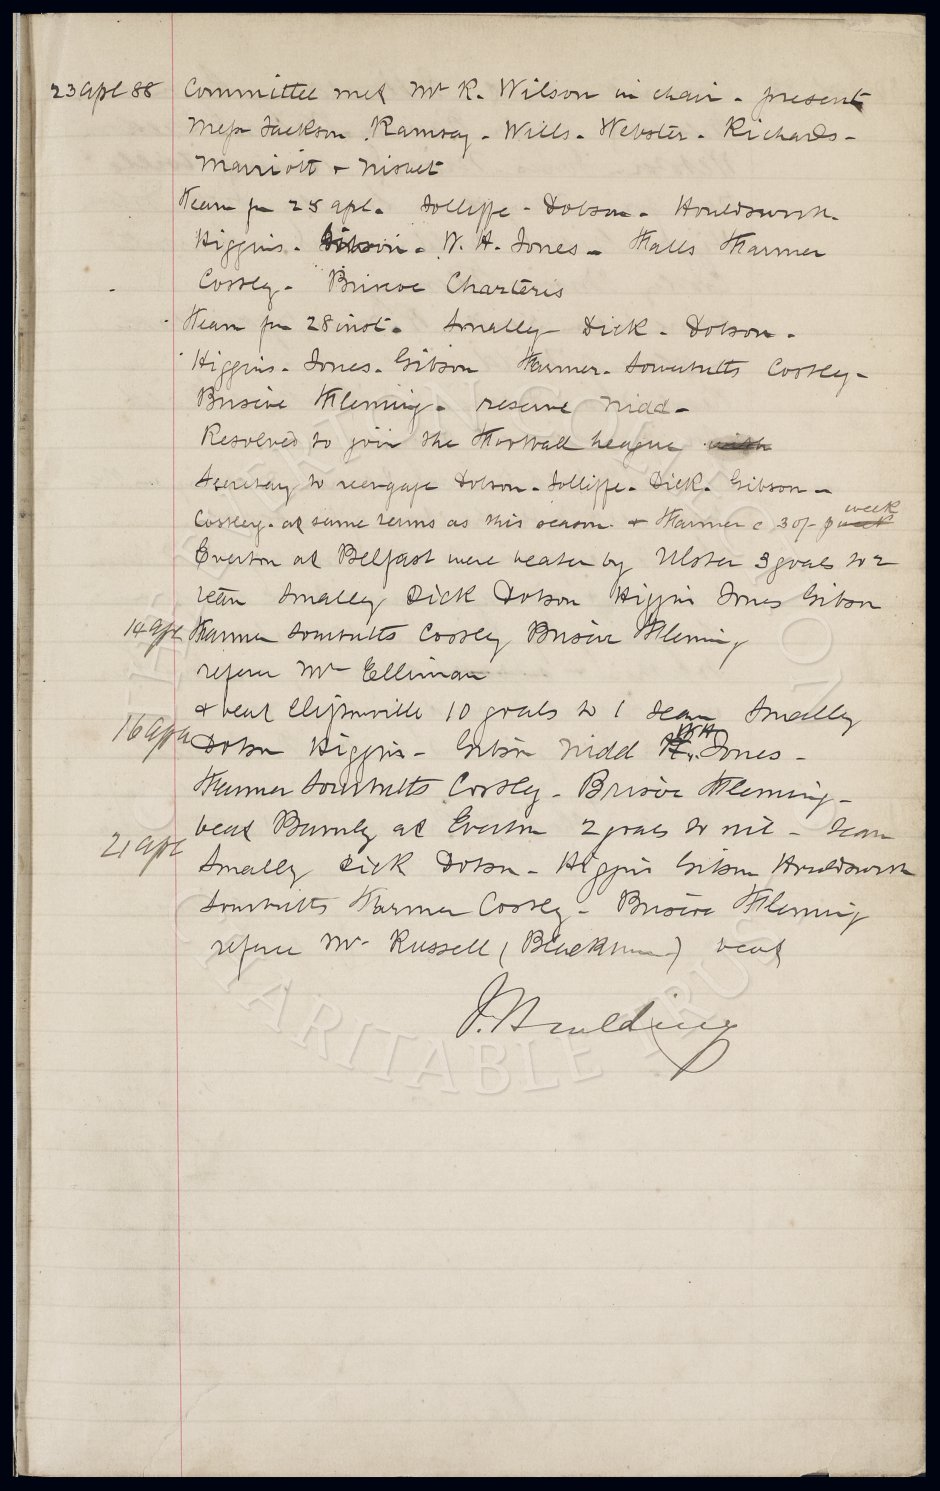 23 Apl 88 Committee met Mr R. Wilson in chair - present
Messrs Jackson Ramsay - Wills - Webster - Richards -
Marriott + Nisbet
Team for 25 Apl. Jolliffe - Dobson - Houldsworth -
Higgins - Gibson - W. H. Jones - Falls Farmer
Costley - Briscoe Charteris
Team for 28 inst. Smalley - Dick - Dobson -
Higgins - Jones - Gibson Farmer - Lowbutts Costley -
Briscoe Fleming - reserve Nidd -
Resolved to join the Football League with
Secretary to reengage Dobson - Jolliffe - Dick - Gibson -
Costley - at same terms as this season + Farmer @ 30/- p week
week
Everton at Belfast were beaten by Ulster 3 goals to 2
team Smalley Dick Dobson Higgins Jones Gibson
14 Apl Farmer Lowbutts Costley Briscoe Fleming
referee Mr Elliman
+ beat Cliftonville 10 goals to 1 team Smalley
16 Apl Dobson Higgins - Gibson Nidd WH Jones -
Farmer Lowbutts Costley - Briscoe Fleming -
beat Burnley at Everton 2 goals to nil - team
21 Apl Smalley Dick Dobson - Higgins Gibson Houldsworth
Lowbutts Farmer Costley - Briscoe Fleming
referee Mr Russell (Blackburn) beat
THE EVERTON COLLECTION
CHARITABLE TRUST